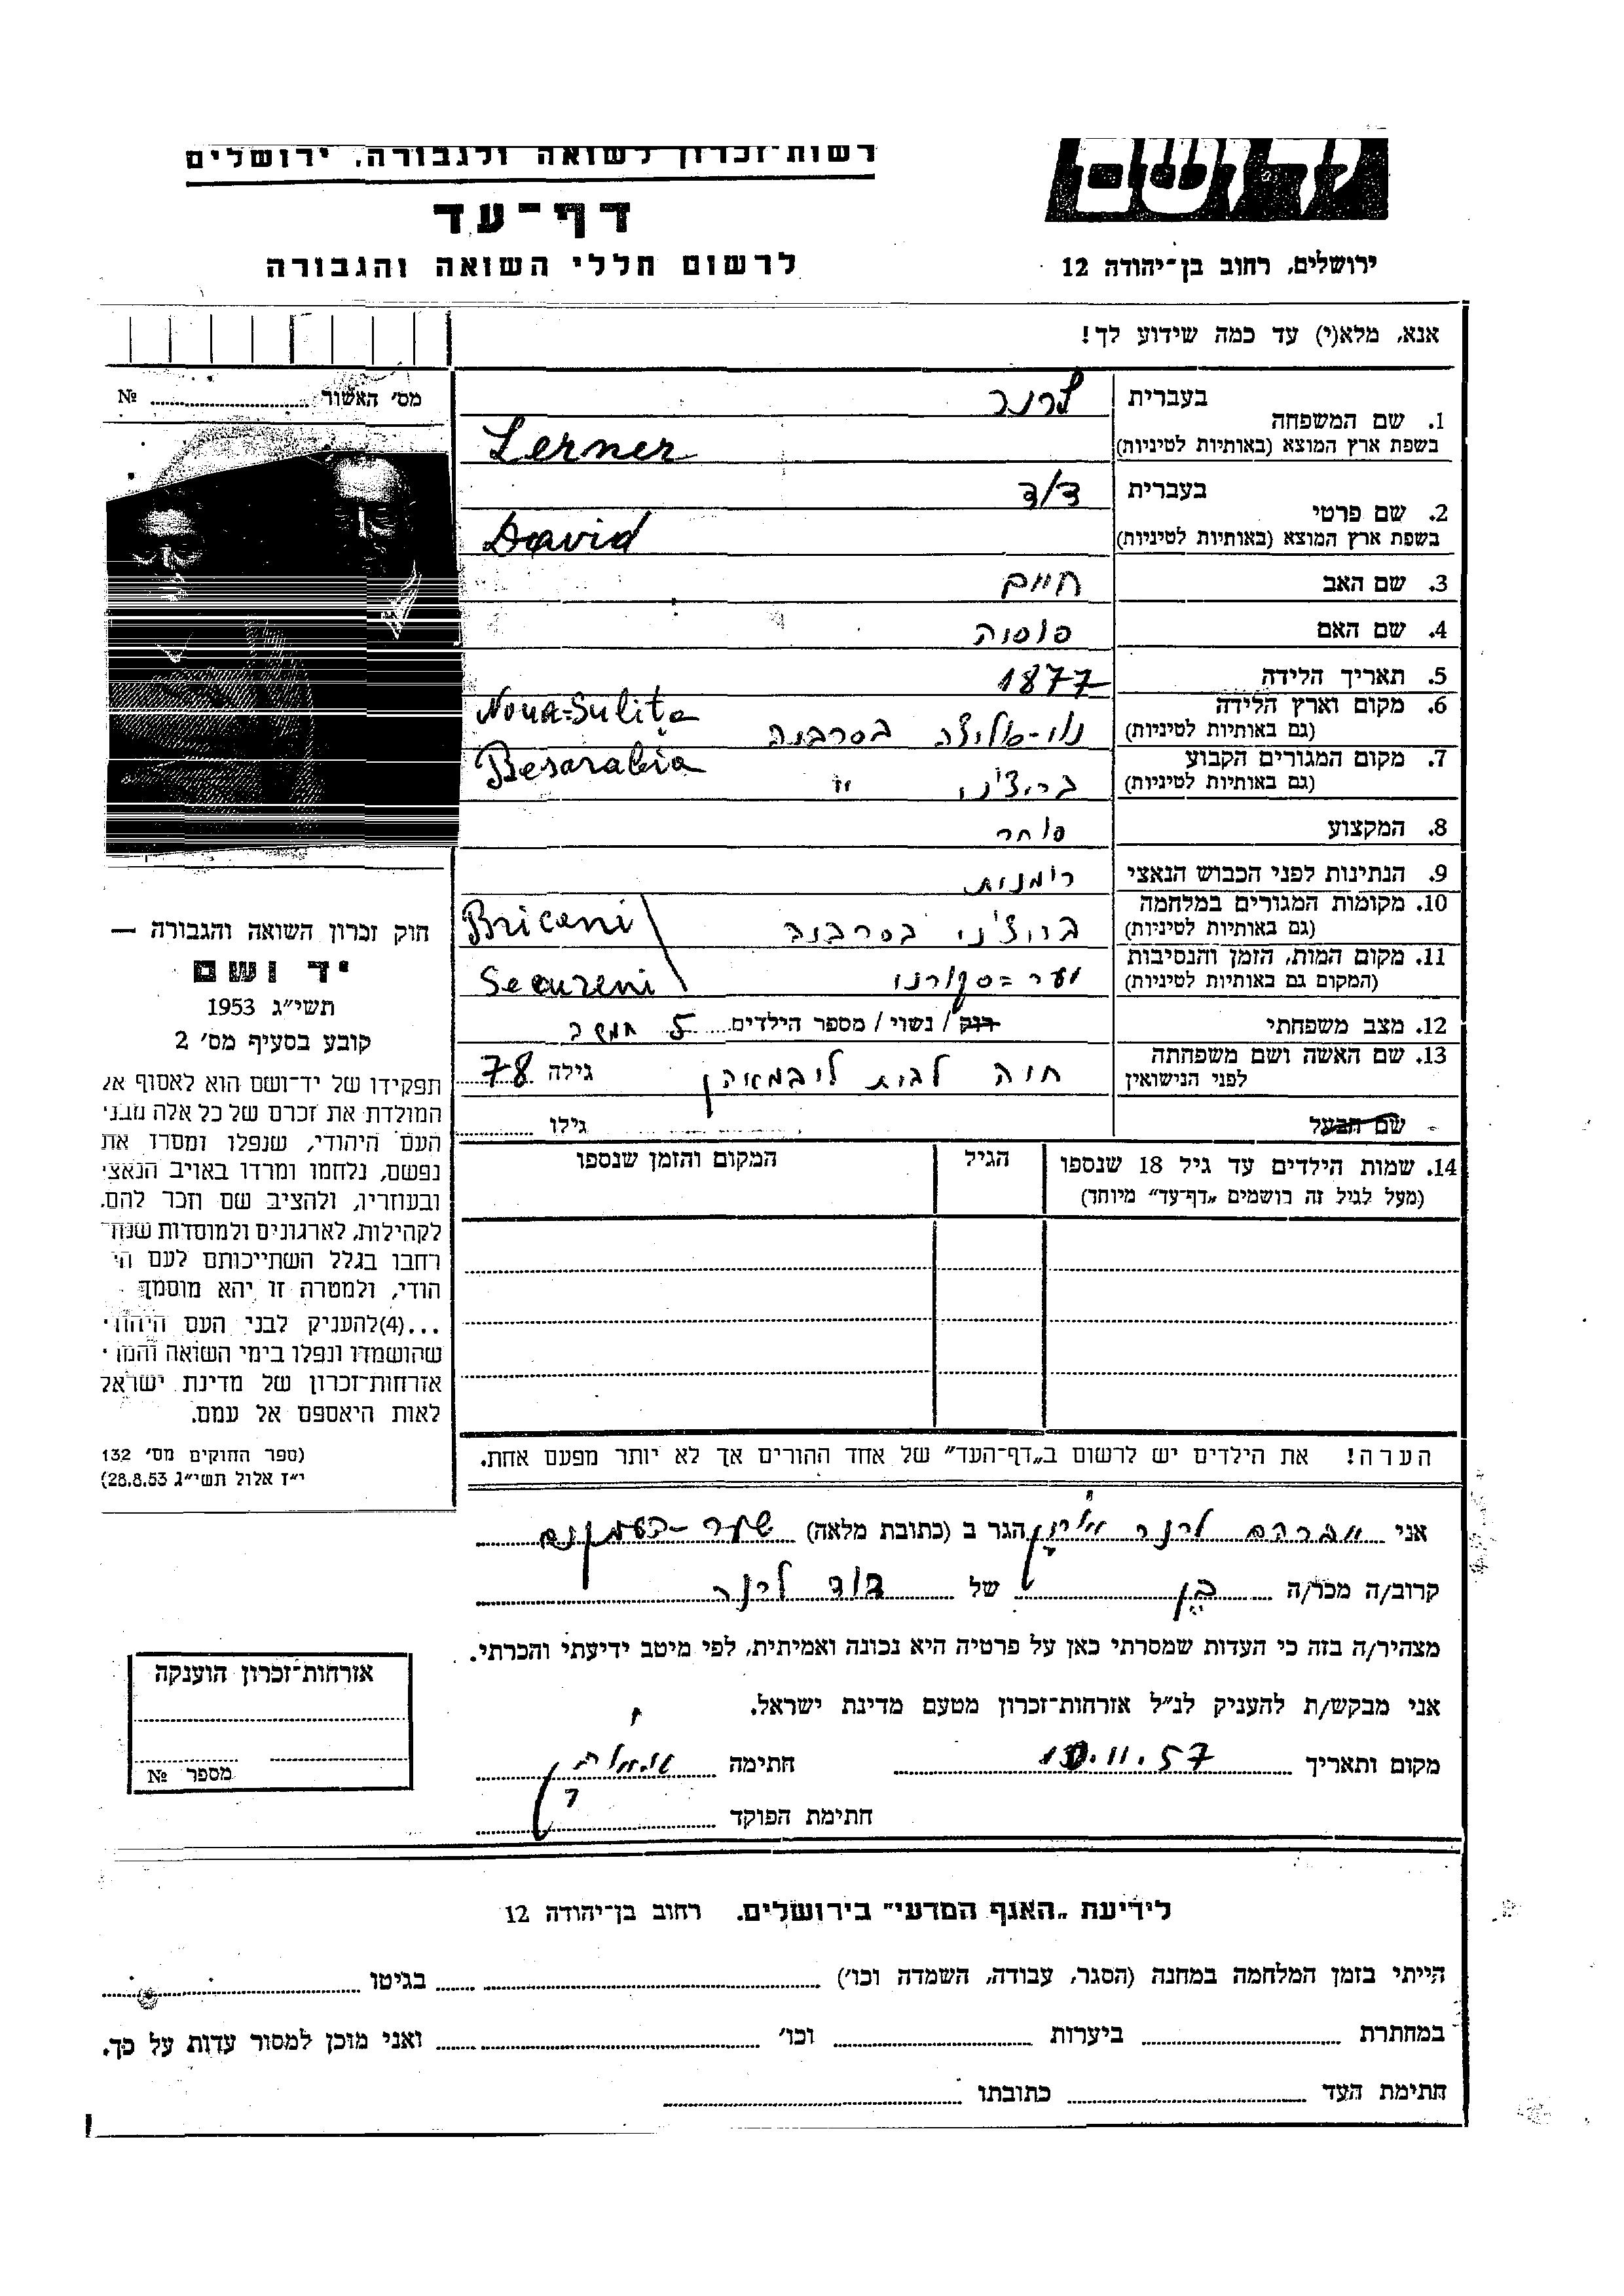 רשות־זכרון לשואה ולגבורה, ירושלים
ידושם
דף־עד
לרשום חללי השואה והגבורה
ירושלים, רחוב בן־יהודה 12
אנא, מלא(י) עד כמה שידוע לך!
מס׳ האשור № 
1. שם המשפחה
בעברית לרנר
בשפת ארץ המוצא (באותיות לטיניות) Lerner
2. שם פרטי
בעברית דוד
בשפת ארץ המוצא (באותיות לטיניות) David
3. שם האב חיים
4. שם האם
5. תאריך הלידה 1877
6. מקום וארץ הלידה
(גם באותיות לטיניות) בסרביה Noua-Sulita
7. מקום המגורים הקבוע Besarabia
(גם באותיות לטיניות) בריצ׳ני "
8. המקצוע סוחר
9. הנתינות לפני הכבוש הנאצי רומנית
10. מקומות המגורים במלחמה
(גם באותיות לטיניות) בריצ׳ני בסרביה Briceni
11. מקום המות, הזמן והנסיבות
(המקום גם באותיות לטיניות) יער-סקורני Secureni
12. מצב משפחתי רוק / נשוי / מספר הילדים 5
13. שם האשה ושם משפחתה
לפני הנישואין חוה לבית גילה 78
שם הבעל גילו
14. שמות הילדים עד גיל 18 שנספו
(מעל לגיל זה רושמים „דף־עד״ מיוחד)
הגיל
המקום והזמן שנספו
חוק זכרון השואה והגבורה —
יד ושם
תשי״ג 1953
קובע בסעיף מס׳ 2
תפקידו של יד־ושם הוא לאסוף אל
המולדת את זכרם של כל אלה מבני
העם היהודי, שנפלו ומסרו את
נפשם, נלחמו ומרדו באויב הנאצי
ובעוזריו, ולהציב שם וזכר להם,
לקהילות, לארגונים ולמוסדות שנח־
רחבו בגלל השתייכותם לעם הי־
הודי, ולמטרה זו יהא מוסמך
...(4) להעניק לבני העם היהודי
שהושמדו ונפלו בימי השואה והמרי
אזרחות־זכרון של מדינת ישראל
לאות היאספם אל עמם.
(ספר החוקים מס׳ 132
י״ז אלול תשי״ג 28.8.53)
הערה! את הילדים יש לרשום ב„דף־העד״ של אחד ההורים אך לא יותר מפעם אחת.
אני אברהם לרנר הגר ב (כתובת מלאה)
קרוב/ה מכר/ה בן של דוד לרנר
מצהיר/ה בזה כי העדות שמסרתי כאן על פרטיה היא נכונה ואמיתית, לפי מיטב ידיעתי והכרתי.
אני מבקש/ת להעניק לנ״ל אזרחות־זכרון מטעם מדינת ישראל.
מקום ותאריך 10.11.57 חתימה
חתימת הפוקד
אזרחות־זכרון הוענקה
מספר №
לידיעת „האגף המדעי״ בירושלים, רחוב בן־יהודה 12
הייתי בזמן המלחמה במחנה (הסגר, עבודה, השמדה וכו׳) בגיטו
במחתרת ביערות וכו׳ ואני מוכן למסור עדות על כך.
חתימת העד כתובתו